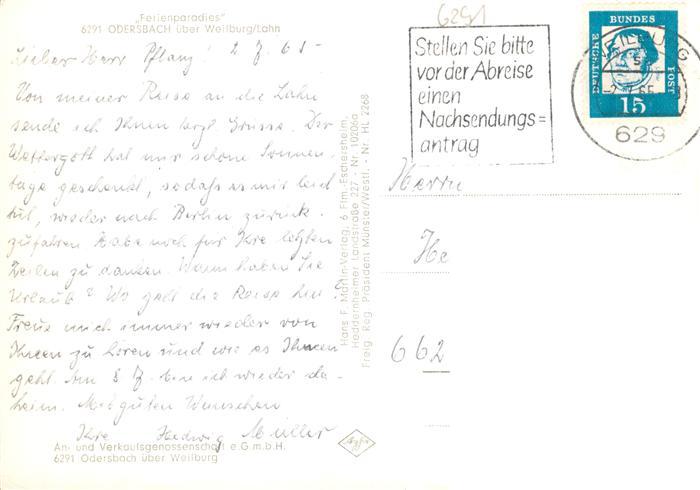 „Ferienparadies"
6291 ODERSBACH über Weilburg/Lahn
Lieber Herr Pflanz! 2 7. 65 -
Von meiner Reise an die Lahn
sende ich Ihnen herzl. Grüsse. Der
Wettergott hat mir schöne Sonnen-
tage geschenkt, sodass es mir leid
tut, wieder nach Berlin zurück-
zufahren. Habe noch für Ihre letzten
Zeilen zu danken. Wann haben Sie
Urlaub? Wo geht die Reise hin?
Freue mich immer wieder von
Ihnen zu hören und wie es Ihnen
geht. Am 8 7. bin ich wieder da-
heim. Mit guten Wünschen
Ihre Hedwig Müller
An- und Verkaufsgenossenschaft e.G.m.b.H.
6291 Odersbach über Weilburg
Hans F. Martin-Verlag, 6 Ffm.-Eschersheim,
Heddernheimer Landstraße 227 - Nr. 10206a
Freig. Reg. Präsident Münster/Westf. - Nr. HL 2268
6291
Stellen Sie bitte
vor der Abreise
einen
Nachsendungs=
antrag
DEUTSCHE BUNDES POST
15
WEILBURG
629
Herrn
He
662